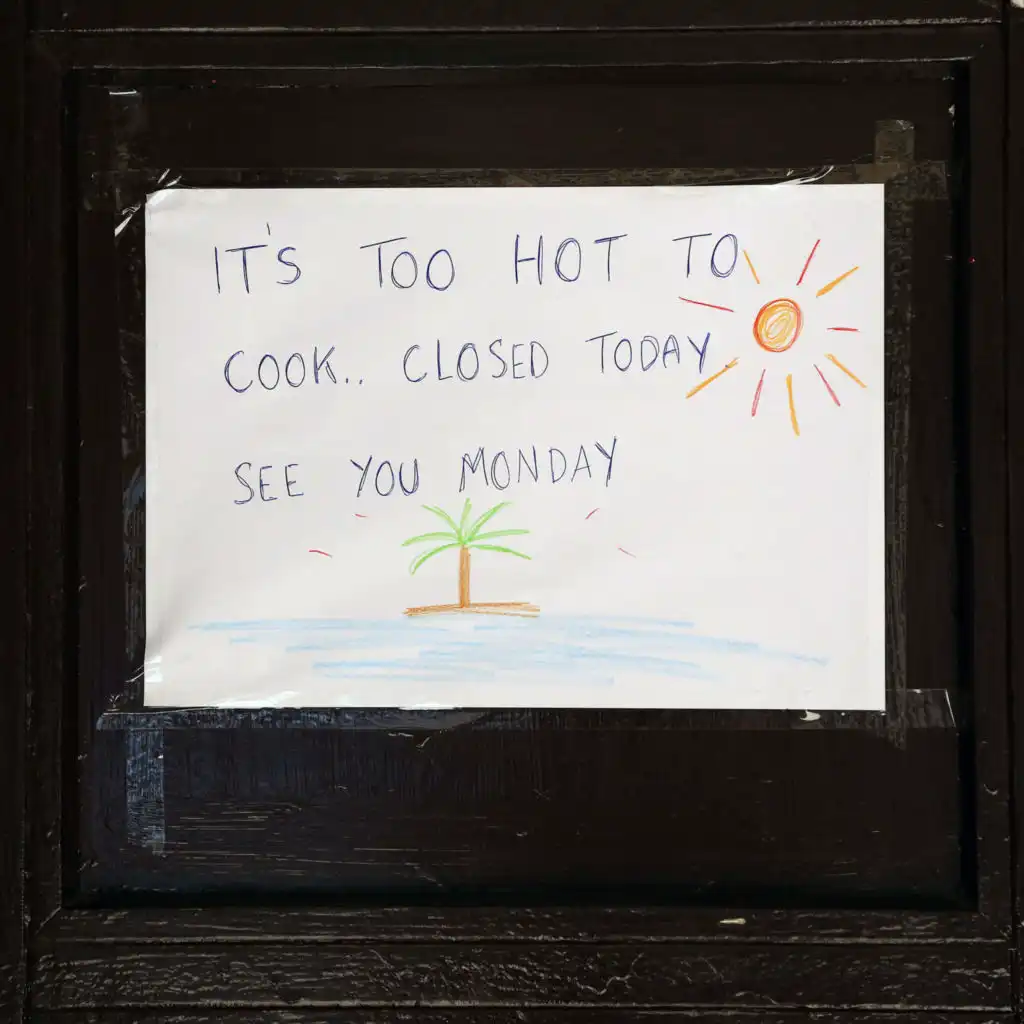 IT'S TOO HOT TO
COOK.. CLOSED TODAY
SEE YOU MONDAY